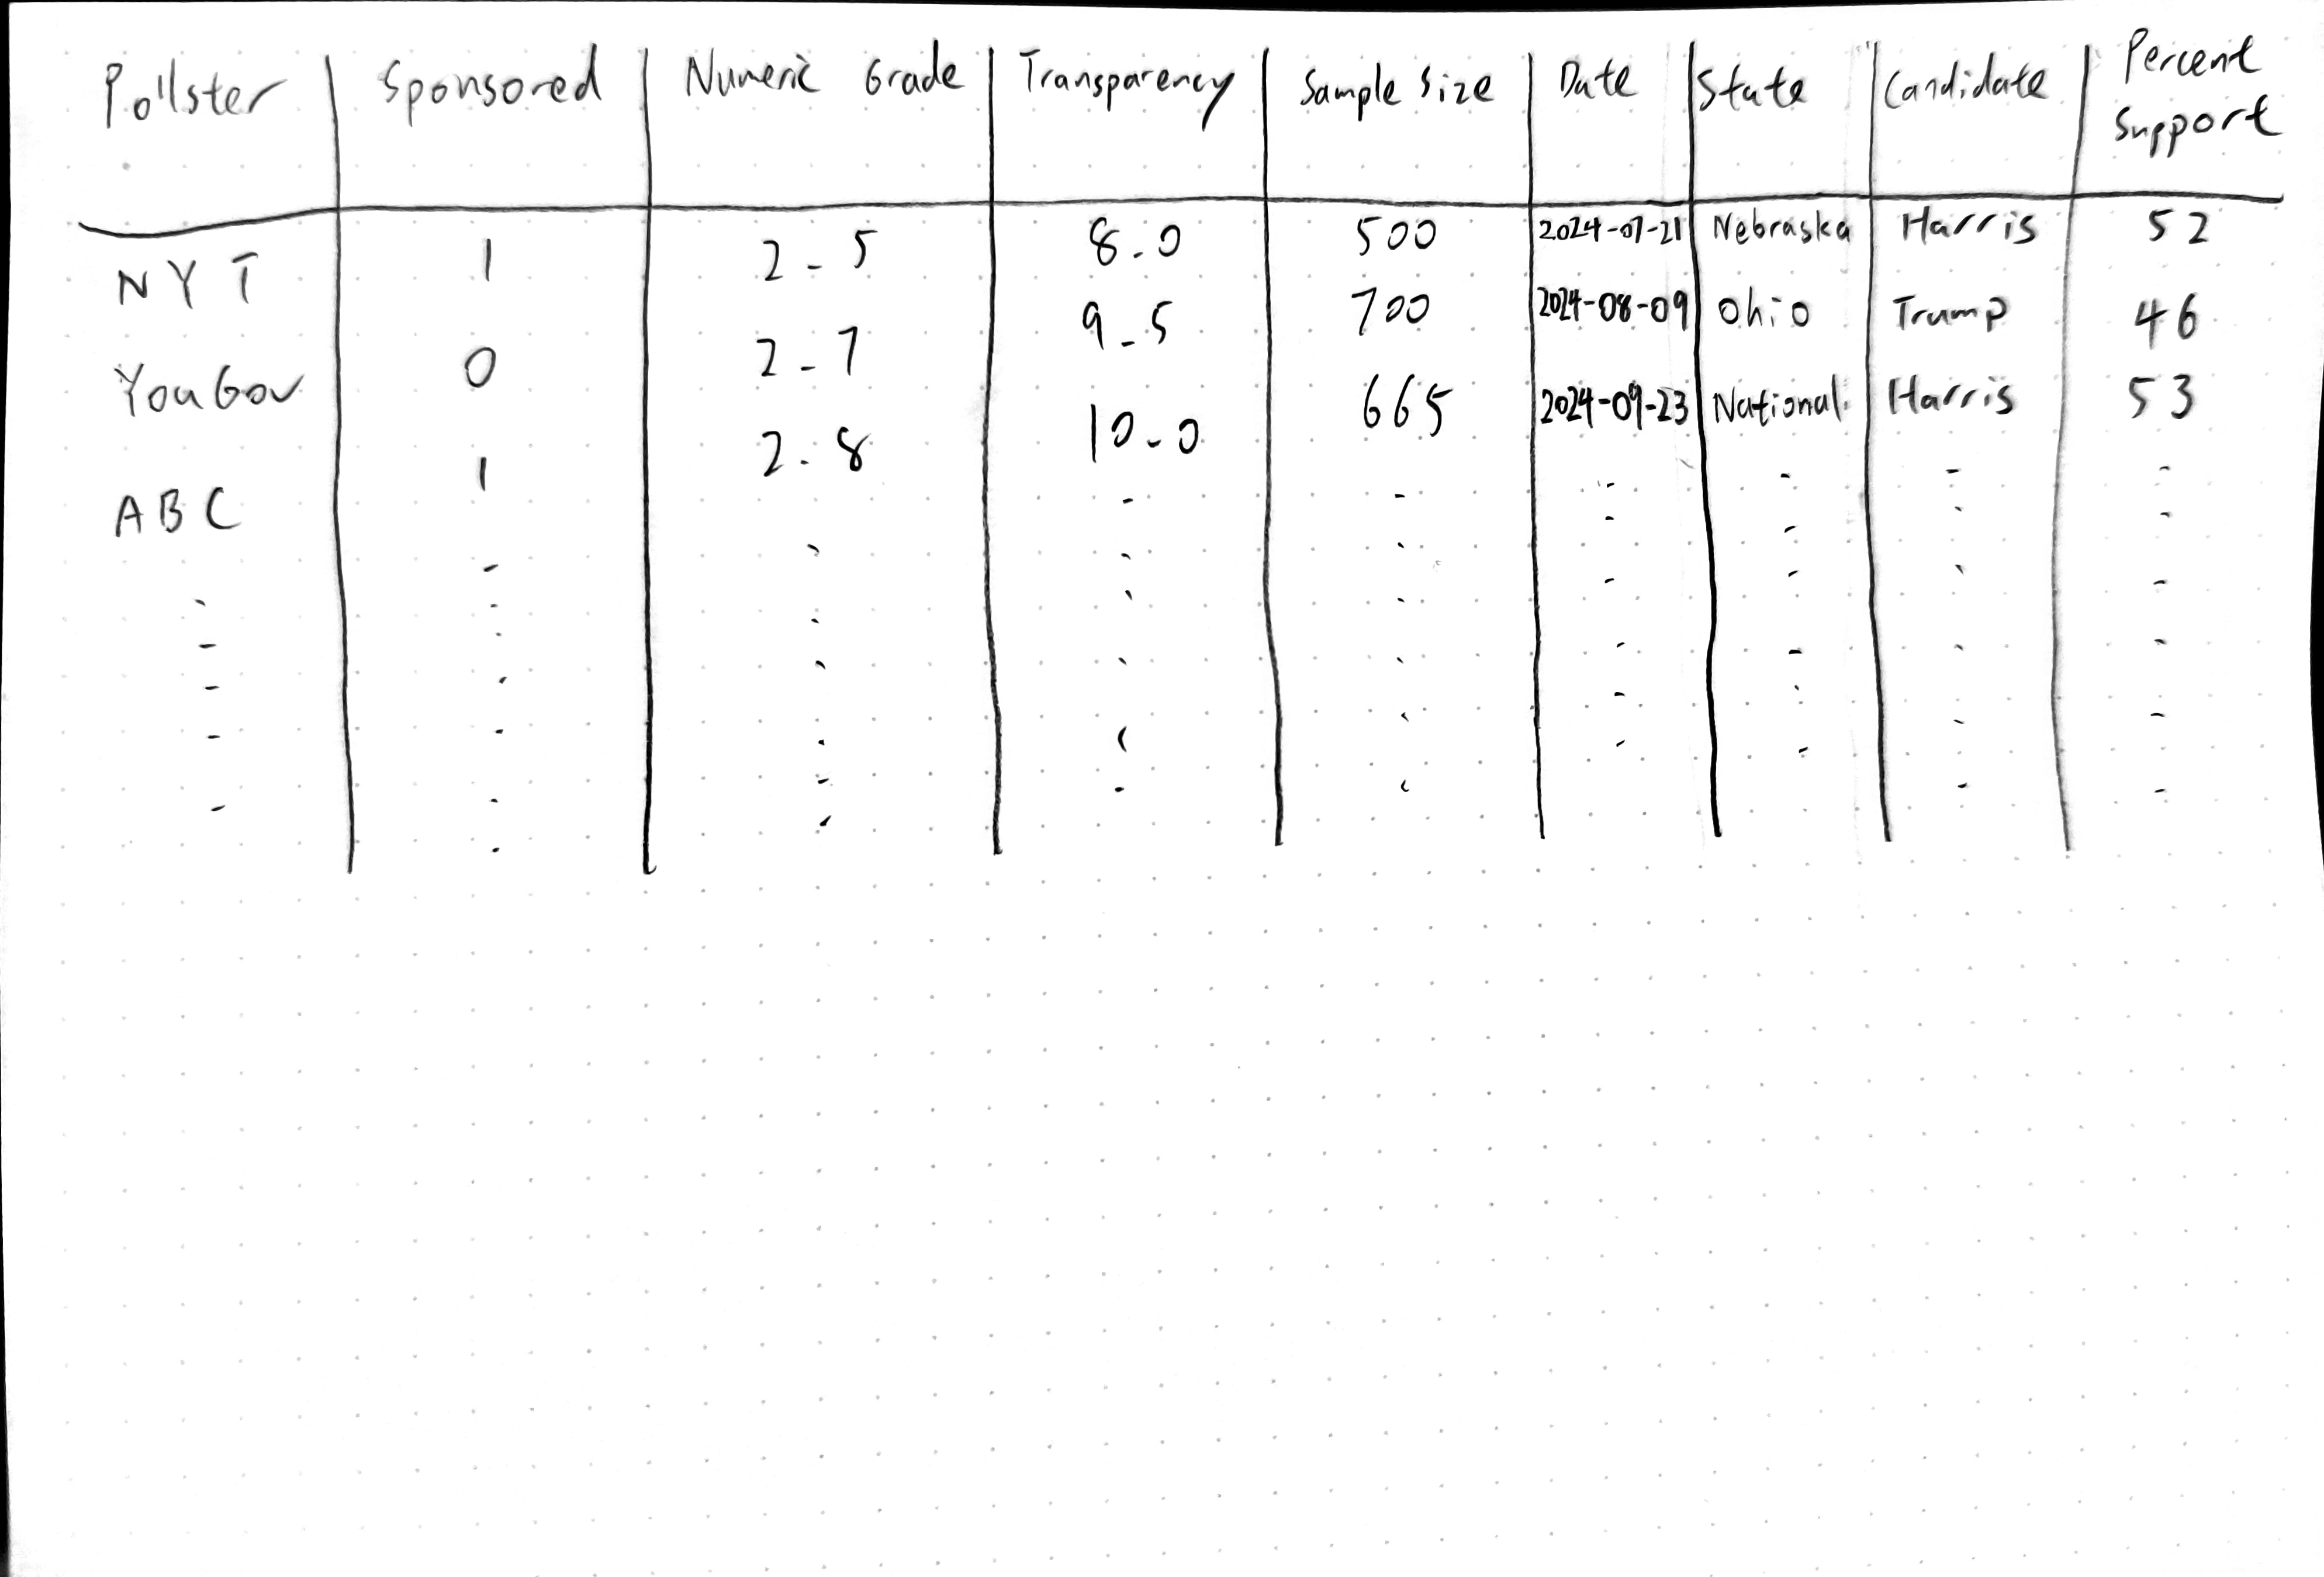 Pollster Sponsored Numeric Grade Transparency Sample Size Date State Candidate Percent Support
NYT 1 2.5 8.0 500 2024-07-21 Nebraska Harris 52
YouGov 0 2.7 9.5 700 2024-08-09 Ohio Trump 46
ABC 1 2.8 10.0 665 2024-09-23 National Harris 53